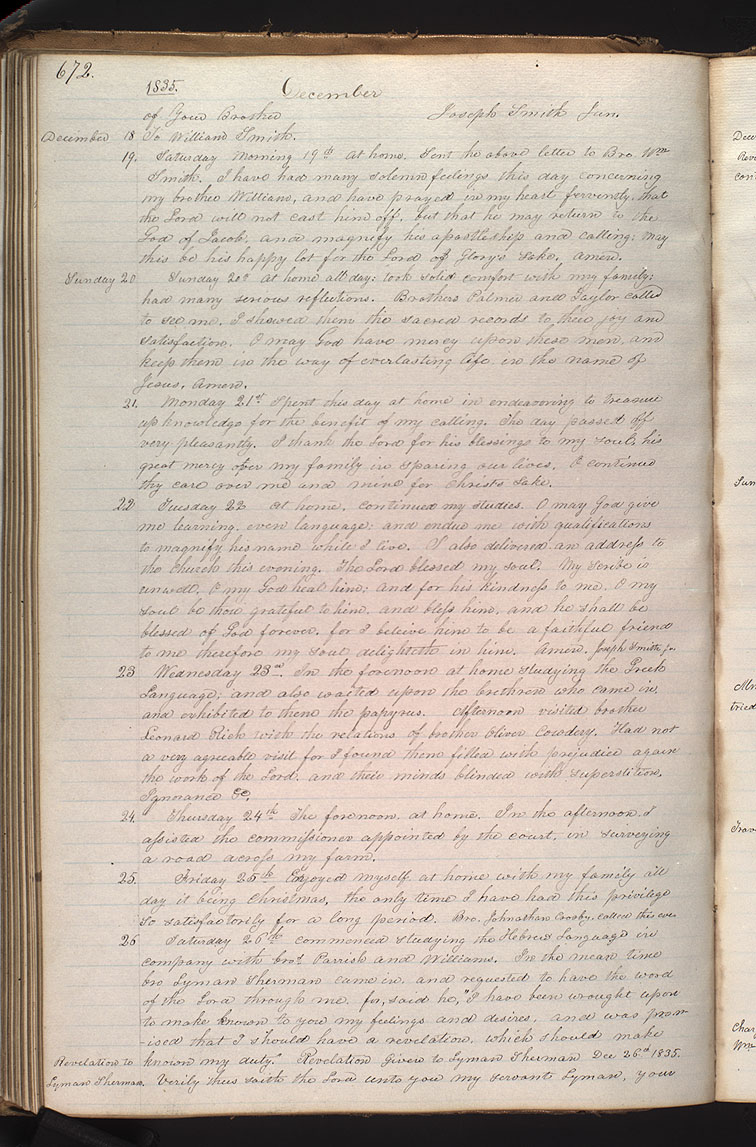 672.
1835. December
of Your Brother Joseph Smith Jun.
December 18 To William Smith.
19. Saturday Morning 19th at home. Sent the above letter to Bro. Wm
Smith. I have had many solemn feelings this day concerning
my brother William, and have prayed in my heart fervently, that
the Lord will not cast him off, but that he may return to the
God of Jacob, and magnify his apostleship and calling; may
this be his happy lot for the Lord of Glory's Sake, amen.
Sunday 20 Sunday 20th at home all day; took solid comfort with my family;
had many serious reflections. Brothers Palmer and Taylor called
to see me. I shewed them the sacred records to their joy and
satisfaction. O may God have mercy upon these men, and
keep them in the way of everlasting life in the name of
Jesus, Amen.
21. Monday 21st Spent this day at home in endeavoring to treasure
up knowledge for the benefit of my calling. The day passed off
very pleasantly. I thank the Lord for his blessings to my soul, his
great mercy over my family in sparing our lives. O continue
thy care over me and mine for Christs sake.
22 Tuesday 22 at home. continued my studies. O may God give
me learning, even language; and endue me with qualifications
to magnify his name while I live. I also delivered an address to
the Church this evening. The Lord blessed my soul. My Scribe is
unwell, O my God heal him; and for his kindness to me, O my
soul be thou grateful to him, and bless him, and he shall be
blessed of God forever, for I beleive him to be a faithful friend
to me therefore my soul delighteth in him. Amen. Joseph Smith jr.
23 Wednesday 23rd. In the forenoon at home studying the Greek
Language; and also waited upon the brethren who came in,
and exhibited to them the papyrus. Afternoon visited brother
Leonard Rich with the relations of brother Oliver Cowdery. Had not
a very agreeable visit for I found them filled with prejudice against
the work of the Lord, and their minds blinded with superstition,
Ignorance &c.
24. Thursday 24th The forenoon, at home. In the afternoon, I
assisted the commissioner appointed by the court, in surveying
a road across my farm.
25. Friday 25th Enjoyed myself at home with my family all
day it being Christmas, the only time I have had this privilege
so satisfactorily for a long period. Bro. Johnathan Crosby, called this eve
26 Saturday 26th commenced studying the Hebrew Language in
company with brot Parrish and Williams. In the mean time
bro Lyman Sherman came in, and requested to have the word
of the Lord through me, for, said he, "I have been wrought upon
to make known to you my feelings and desires, and was prom-
-ised that I should have a revelation, which should make
Revelation to known my duty." Revelation Given to Lyman Sherman Dec 26th 1835.
Lyman Sherman. Verily thus saith the Lord unto you my servant Lyman, your